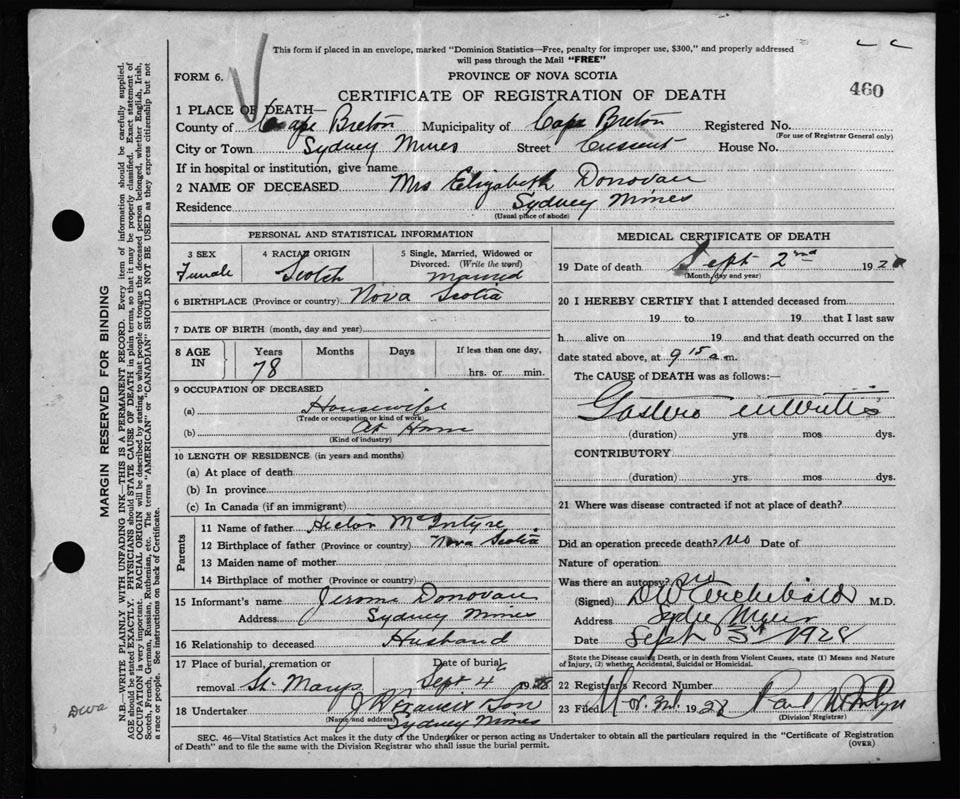 This form if placed in an envelope, marked "Dominion Statistics—Free, penalty for improper use, $300," and properly addressed
will pass through the Mail "FREE"
FORM 6.
PROVINCE OF NOVA SCOTIA
CERTIFICATE OF REGISTRATION OF DEATH
460
1 PLACE OF DEATH—
County of Cape Breton Municipality of Cape Breton Registered No.
(For use of Registrar General only)
City or Town Sydney Mines Street Crescent House No.
If in hospital or institution, give name
2 NAME OF DECEASED Mrs Elizabeth Donovan
Residence Sydney Mines
(Usual place of abode)
PERSONAL AND STATISTICAL INFORMATION
3 SEX
Female
4 RACIAL ORIGIN
Scotch
5 Single, Married, Widowed or
Divorced. (Write the word)
Married
6 BIRTHPLACE (Province or country) Nova Scotia
7 DATE OF BIRTH (month, day and year)
8 AGE IN
Years 78
Months
Days
If less than one day,
hrs. or min.
9 OCCUPATION OF DECEASED
(a) Housewife
(Trade or occupation or kind of work)
(b) At Home
(Kind of industry)
10 LENGTH OF RESIDENCE (in years and months)
(a) At place of death
(b) In province
(c) In Canada (if an immigrant)
Parents
11 Name of father Hector McIntyre
12 Birthplace of father (Province or country) Nova Scotia
13 Maiden name of mother
14 Birthplace of mother (Province or country)
15 Informant's name Jerome Donovan
Address Sydney Mines
16 Relationship to deceased Husband
17 Place of burial, cremation or Date of burial
removal St. Marys Sept 4 1928
18 Undertaker Son
(Name and address) Sydney Mines
MEDICAL CERTIFICATE OF DEATH
19 Date of death Sept 2nd 192
(Month, day and year)
20 I HEREBY CERTIFY that I attended deceased from
19 to 19 that I last saw
h alive on 19 and that death occurred on the
date stated above, at 9 15 a.m.
The CAUSE of DEATH was as follows:—
Gastero enteritis
(duration) yrs. mos. dys.
CONTRIBUTORY
(duration) yrs. mos. dys.
21 Where was disease contracted if not at place of death?
Did an operation precede death? no Date of
Nature of operation
Was there an autopsy? no
(Signed) Archibald M.D.
Address Sydney Mines
Date Sept 3 1928
State the Disease causing Death, or in death from Violent Causes, state (1) Means and Nature
of Injury, (2) whether Accidental, Suicidal or Homicidal.
22 Registrar's Record Number
23 Filed 1928 Paul
(Division Registrar)
SEC. 46—Vital Statistics Act makes it the duty of the Undertaker or person acting as Undertaker to obtain all the particulars required in the "Certificate of Registration
of Death" and to file the same with the Division Registrar who shall issue the burial permit.
(OVER)
MARGIN RESERVED FOR BINDING
N.B.—WRITE PLAINLY WITH UNFADING INK—THIS IS A PERMANENT RECORD. Every item of information should be carefully supplied.
AGE should be stated EXACTLY. PHYSICIANS should STATE CAUSE OF DEATH in plain terms, so that it may be properly classified. Exact statement of
OCCUPATION is very important. RACIAL ORIGIN will be described by stating to what people or tongue the deceased person belonged, whether English, Irish,
Scotch, French, German, Russian, Ruthenian, etc. The terms "AMERICAN" or "CANADIAN" SHOULD NOT BE USED as they express citizenship but not
a race or people. See instructions on back of Certificate.